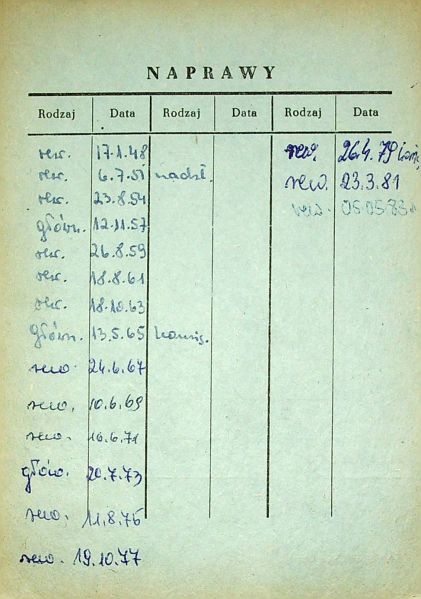 NAPRAWY
Rodzaj Data Rodzaj Data Rodzaj Data
rew. 17.1.48 rew. 26.4.79
rew. 6.7.51 nadzł. rew. 23.3.81
rew. 23.8.54 rew. 05.05.83
główn. 12.11.57
rew. 26.8.59
rew. 18.8.61
rew. 18.10.63
główn. 13.5.65
rew. 24.6.67
rew. 10.6.69
rew. 16.6.71
głów. 20.7.73
rew. 11.8.75
rew. 19.10.77